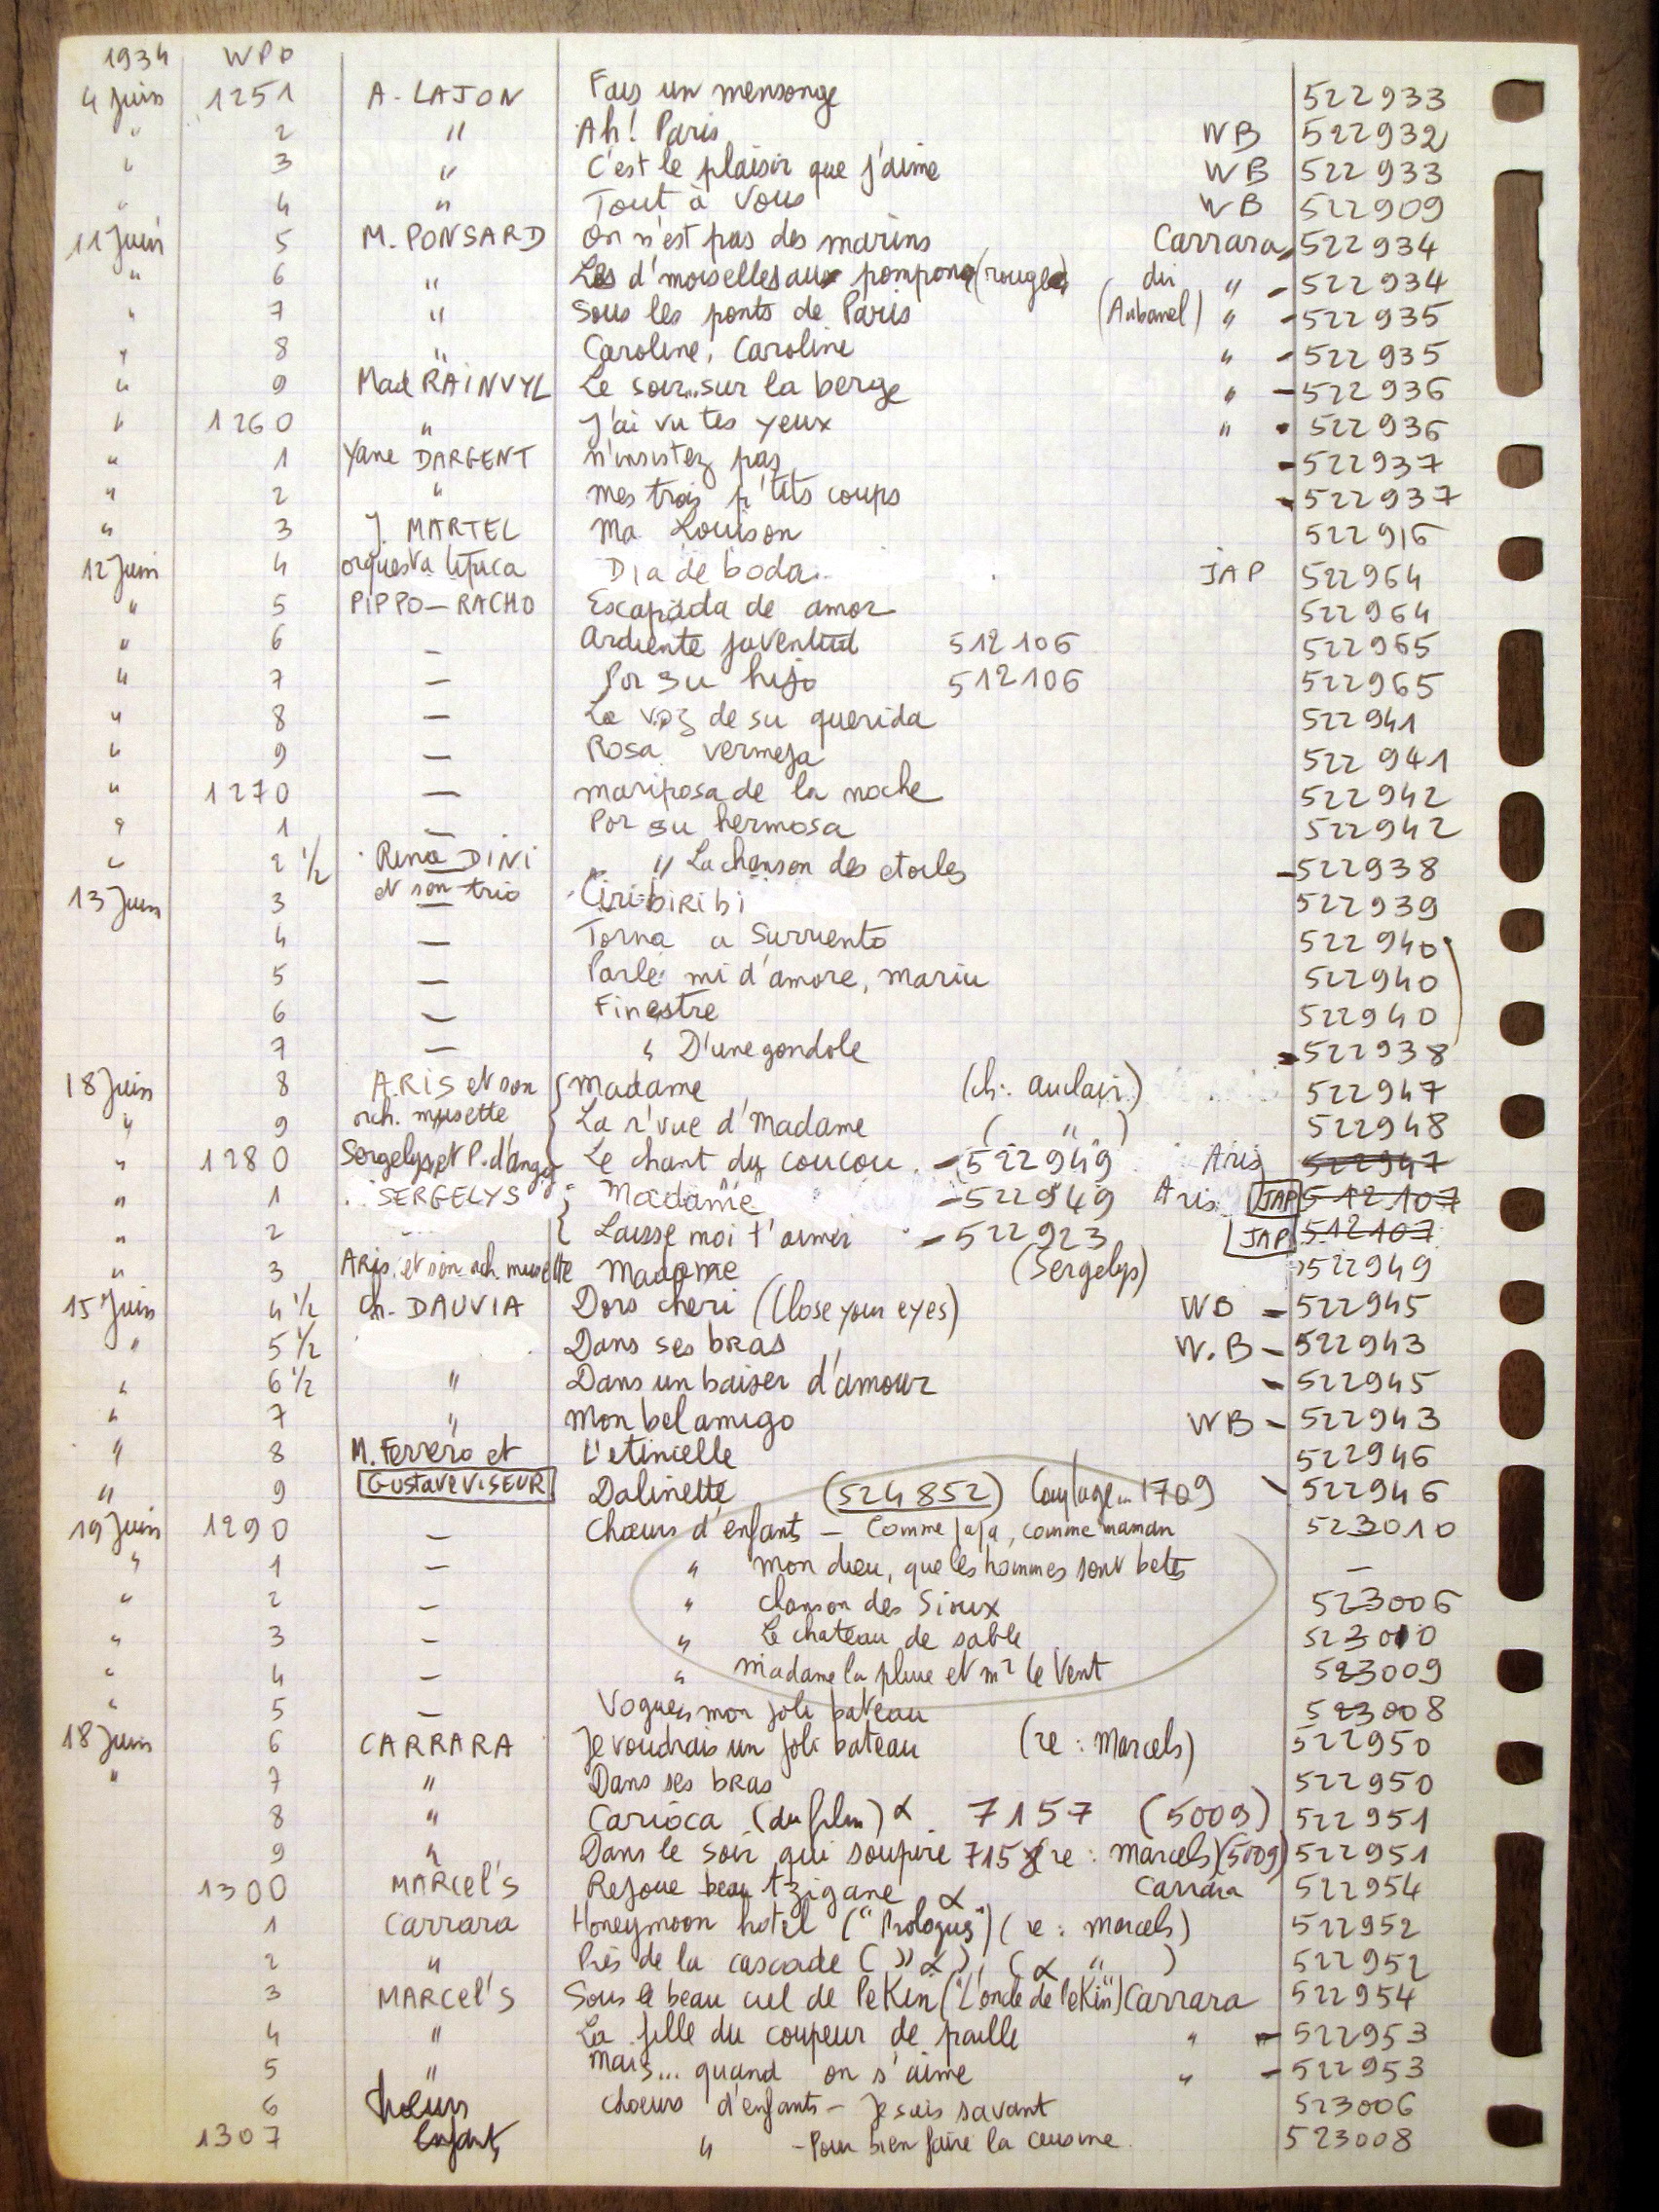 1934 WPP
4 Juin 1251 A. LAJON Fais un mensonge 522933
" 2 " Ah! Paris WB 522932
" 3 " C'est le plaisir que j'aime WB 522933
" 4 " Tout à vous WB 522909
11 Juin 5 M. PONSARD On n'est pas des marins Carrara 522934
" 6 " Les d'moiselles aux pompons (rouges) dir " - 522934
" 7 " Sous les ponts de Paris (Aubanel) " - 522935
" 8 " Caroline, Caroline " - 522935
" 9 Mad RAINVYL Le soir... sur la berge " - 522936
" 1260 " J'ai vu tes yeux " - 522936
" 1 Yane DARGENT n'insistez pas - 522937
" 2 " mes trois p'tits coups - 522937
" 3 J. MARTEL Ma Louison 522916
12 Juin 4 orquesta Dia de boda JAP 522964
" 5 PIPPO - RACHO Escapada de amor 522964
" 6 — Ardiente juventud 512106 522965
" 7 — Por su hijo 512106 522965
" 8 — La voz de su querida 522941
" 9 — Rosa vermeja 522941
" 1270 — mariposa de la noche 522942
" 1 — Por su hermosa 522942
" 2 1/2 Rino DINI " La chanson des etoiles - 522938
13 Juin 3 et son trio — Ciribiribi 522939
4 — Torna a Surriento 522940
5 — Parle mi d'amore, mariu 522940
6 — Finestre 522940
7 — " D'une gondole - 522938
18 Juin 8 ARIS et son { Madame (ch: auclair) 522947
" 9 orch. musette La r'vue d'Madame ( " ) 522948
" 1280 Sergelys et P. d'angy Le chant du coucou - 522949 Aris 522947
" 1 SERGELYS Madame - 522949 Aris JAP 512107
" 2 { Laisse moi t'aimer - 522923 JAP 512107
" 3 Aris et son orch. musette Madame (Sergelys) 522949
15 Juin 4 1/2 Ch. DAUVIA Dors cheri (Close your eyes) WB - 522945
" 5 1/2 Dans ses bras W.B - 522943
" 6 1/2 " Dans un baiser d'amour - 522945
" 7 " Mon bel amigo WB - 522943
" 8 M. Ferrero et L'etincelle 522946
" 9 Gustave VISEUR Dalinette (524852) Couplage 1709 522946
19 Juin 1290 — Chœurs d'enfants - Comme papa, comme maman 523010
" 1 — " mon dieu, que les hommes sont betes —
" 2 — " chanson des Sioux 523006
" 3 — " Le chateau de sable 523010
" 4 — " madame la pluie et mr le Vent 523009
" 5 — Vogues mon joli bateau 523008
18 Juin 6 CARRARA Je voudrais un joli bateau (re: Marcels) 522950
" 7 " Dans ses bras 522950
8 " Carioca (du film) α 7157 (5009) 522951
9 " Dans le soir qui soupire 7158 (re: marcels) (5009) 522951
1300 MARCEL'S Rejoue beau tzigane α Carrara 522954
1 Carrara Honeymoon hotel ("Prologues") (re: marcels) 522952
2 " Près de la cascade ( " α ) ( α " ) 522952
3 MARCEL'S Sous le beau ciel de Pekin ("L'oncle de Pekin") Carrara 522954
4 " La fille du coupeur de paille " - 522953
5 " Mais... quand on s'aime " - 522953
6 Chœurs Choeurs d'enfants - Je suis savant 523006
1307 Enfants " - Pour bien faire la cuisine 523008